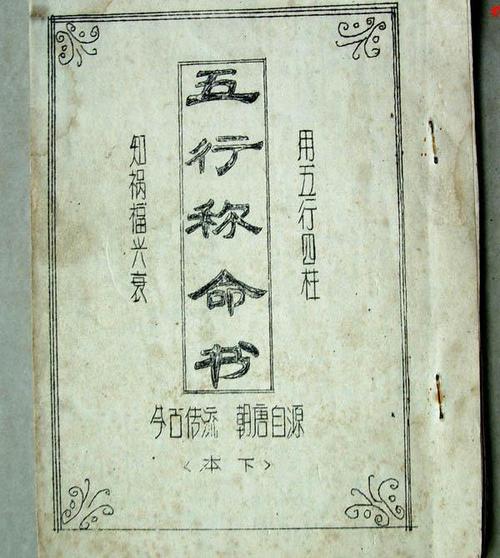 用五行四柱
五行称命书
知祸福兴衰
源自唐朝 流传古今
〈下 本〉